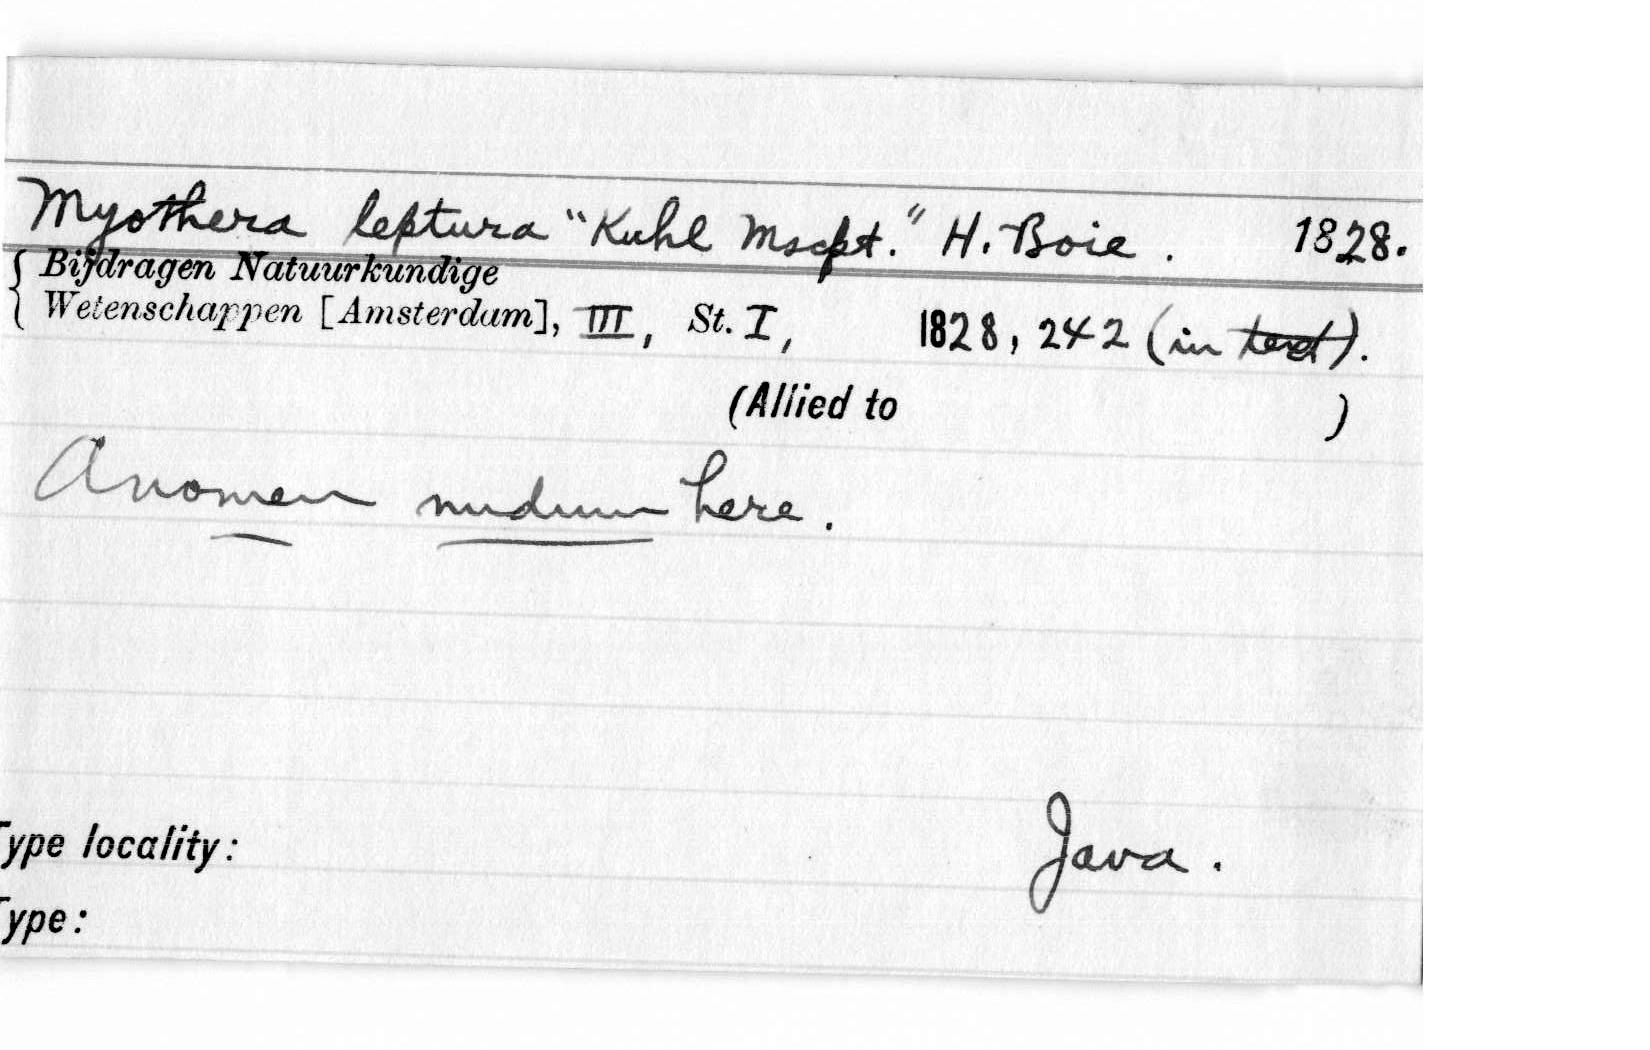 Myothera leptura "Kuhl Mscpt." H. Boie. 1828.
Bijdragen Natuurkundige
Wetenschappen [Amsterdam], III, St. I, 1828, 242 (in text).
(Allied to )
A nomen nudum here.
Type locality: Java.
Type: